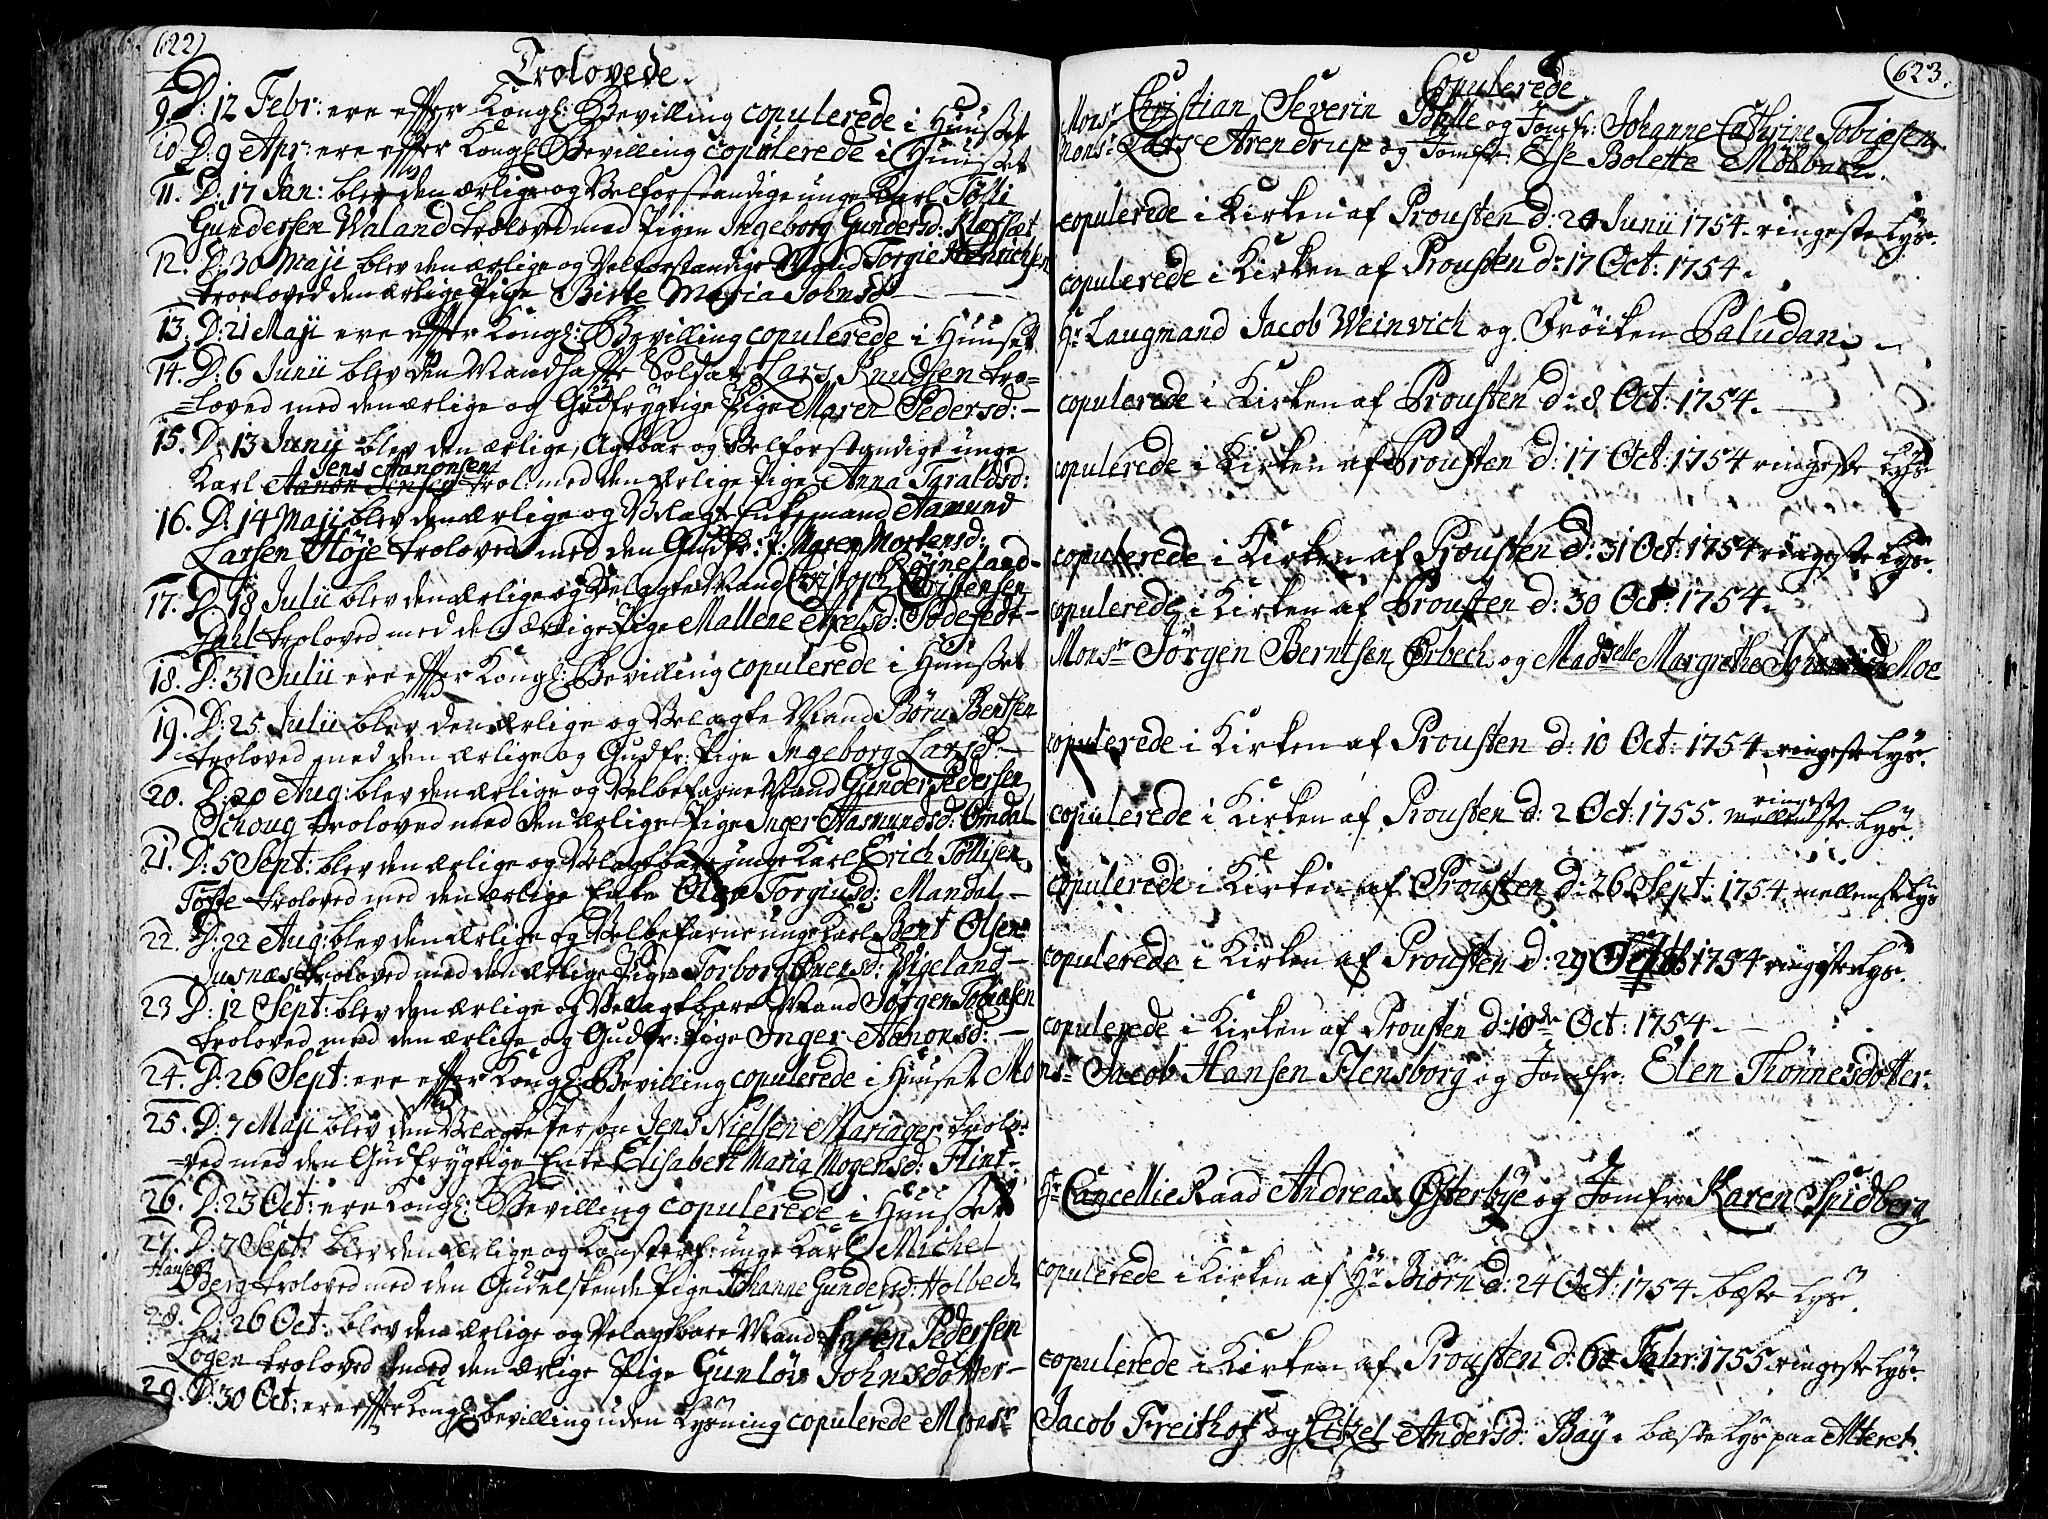 622)
Trolovede.
9. D: 12 Febr: ere efter Kongl: Bevilling copulerede i Huuset
10 D: 9 Apr: ere efter Kongl: Bevilling copulerede i Huuset
11. D: 17 Jan: blev den ærlige og Velforstandige unge Karl Tølli
Gundersen Waland troloved med Pigen Ingeborg Gundersd:
12. D: 30 Maji blev den ærlige og Velforstandige Torgie Hendrichsen
troeloved den ærlige Pige Birte Maria Johnsd
13. D: 21 Maji ere efter Kongl: Bevilling copulerede i Huuset
14. D: 6 Junii blev den Mandhafte Soldat Lars Knudsen tro=
=loved med den ærlige og Gudfrygtige Pige Maren Pedersd:
15. D. 13 Junij blev den ærlige, Agtbar og Velforstandige unge
Jens Aanonsen
Karl Aanon Jensen trol: med den ærlige Pige Anna Taraldsd:
16. D: 14 Maji blev den ærlige og Velagte Enkemand Aamund
Larsen Høje troloved med den Gudfr: P: Maren Mortensd:
Røineland
17. D. 18 Julii blev den ærlige og Velagte Mand Christoph Christensen
Dahl troloved med den ærlige Pige Mallene Axelsd:
18. D: 31 Julii ere efter Kongl: Bevilling copulerede i Huuset
19. D: 25 Julii blev den ærlige og Velagte Mand Børu Bentsen
troloved med den ærlige og Gudfr: Pige Ingeborg Larsd:
20. D: 20 Aug: blev den ærlige og Velbefarne Mand Gunder Pedersen
Schoug troloved med den ærlige Pige Inger Aasmundsd: Omdal
21. D: 5 Sept: blev den ærlige og Velagtbare unge Karl Erich Tollisen
Tofte troloved med den ærlige Enke Olga Torgiusd: Mandal
22. D: 22 Aug: blev den ærlige og Velbefarne unge Karl Bent Olsen
Dusnæs troloved med den ærlige Pige Torborg Svensd: Wigeland
23 D: 12 Sept: blev den ærlige og Velagtbare Mand Jørgen Tobiasen
troloved med den ærlige og Gudfr: Pige Inger Aanonsd:
24. D: 26 Sept: ere efter Kongl: Bevilling copulerede i Huuset Mo
25. D: 7 Maji blev den Velagte Person Jens Nielsen Mariager trolo=
=ved med den Gudfrygtige Enke Elisabeth Maria Mogensd: Flint
26. D: 23 Oct: ere Kongl: Bevilling copulerede i Huuset
27. D: 7 Sept: blev den ærlige og Konsterf: unge Karl Michel
Hansen
Berg troloved med den Gudelskende Pige Johanne Gundersd: Holbech
28. D: 26 Oct: blev den ærlige og Velagtbare Mand Pedersen
Løgen troloved med den ærlige Pige Gunløv Johnsdotter
29. D: 30 Oct: ere efter Kongl bevilling uden Lysning copulerede Monsr
623.
Copulerede.
Monsr Christian Severin Balle og Jomfr: Johanne Cathrine Tobiesen
Mons: Lars Arendrup og Jomfr: Else Bolette Mölbach.
copulerede i Kirken af Prousten d: 20 Junii 1754. ringeste Lys.
copulerede i Kirken af Prousten d: 17 Oct: 1754.
Hr Laugmand Jacob Weinvich og Frøiken Paludan.
copulerede i Kirken af Prousten d: 8 Oct: 1754.
copulerede i Kirken af Prousten d: 17 Oct: 1754 ringeste Lys
copulerede i Kirken af Prousten d: 31 Oct: 1754 ringeste Lys.
copulerede i Kirken af Prousten d: 30 Oct: 1754.
Monsr Jörgen Berntsen Ørbech og Madselle Margrethe Moe
copulerede i Kirken af Prousten d: 10 Oct: 1754. ringeste Lys.
ringeste
copulerede i Kirken af Prousten d: 2 Oct: 1755. mellemste Lys.
copulerede i Kirken af Prousten d: 26 Sept: 1754. mellemste Lys
copulerede i Kirken af Prousten d: 29 1754 ringeste Lys.
copulerede i Kirken af Prousten d: 10de Oct: 1754.
nsr Jacob Hansen Flensborg og Jomfr: Elen Thönnesdotter.
Hr Cancellie Raad Andreas Østerbye og Jomfr: Karen Spidberg
copulerede i Kirken af Hr Biörn d: 24 Oct: 1754. bæste Lys.
copulerede i Kirken af Prousten d: 6 Febr: 1755 ringeste Lys.
Jacob Freithof og Citzel Andersd: Bay. bæste Lys paa Alteret.